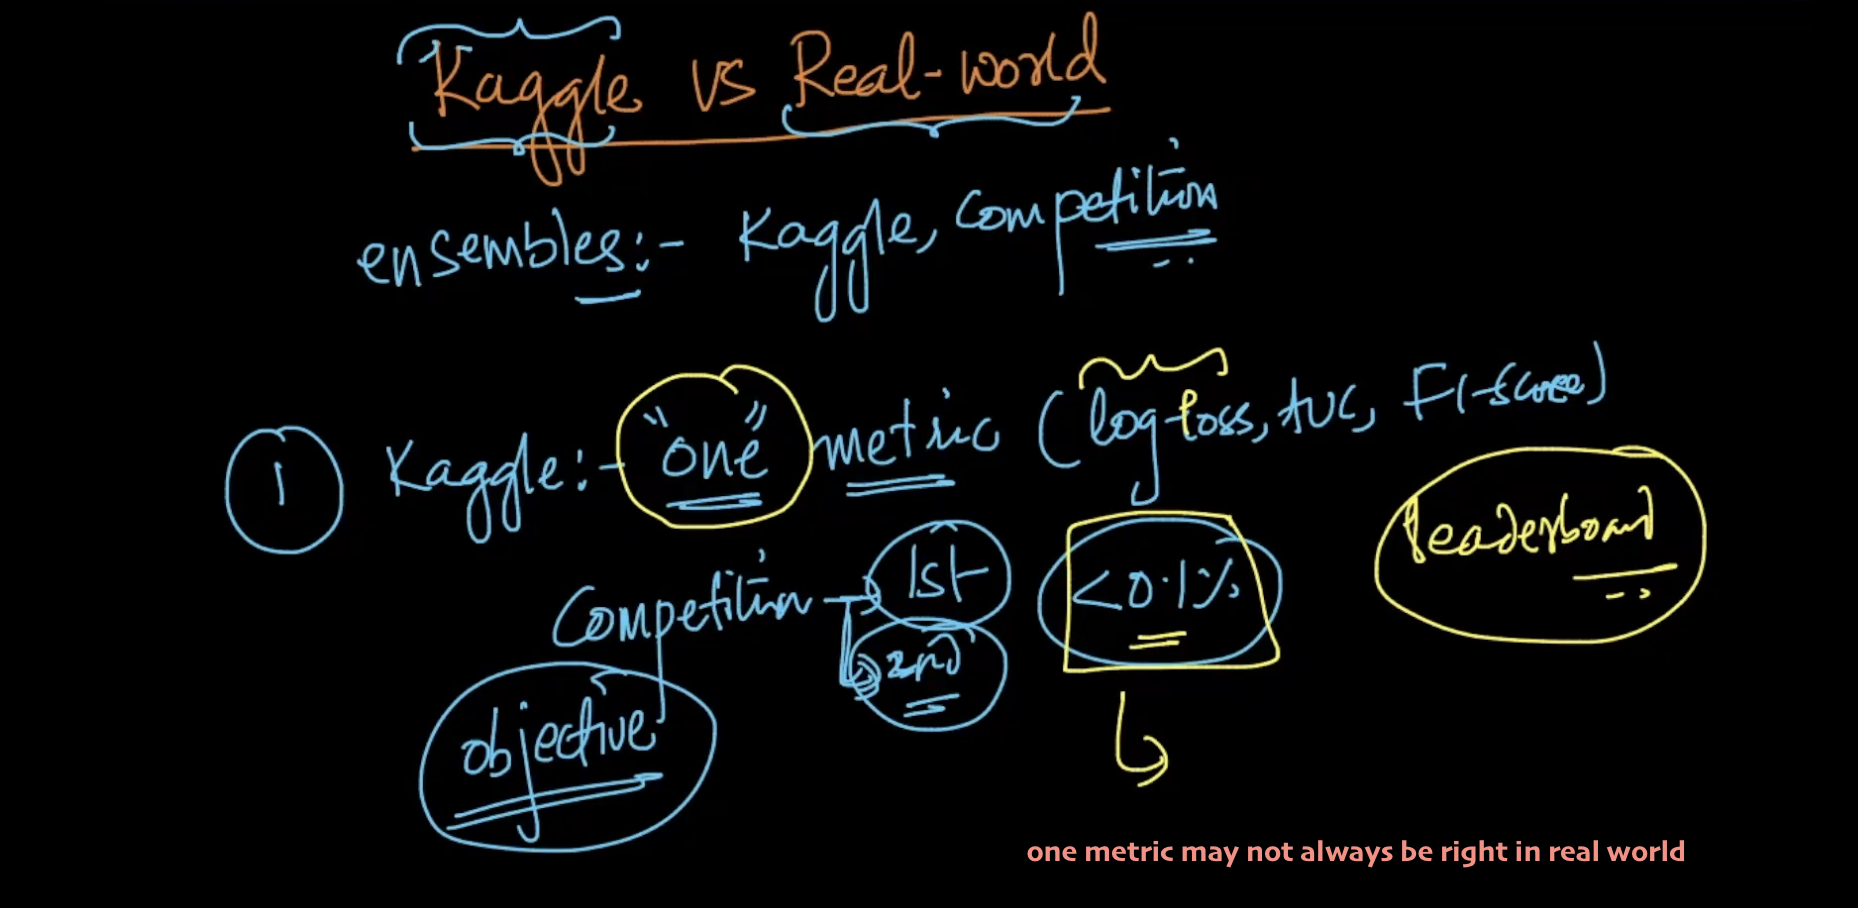 Kaggle vs Real-world
ensembles:- Kaggle, Competition
1 Kaggle:- "one" metric (log-loss, AUC, F1-score)
leaderboard
Competition 1st <0.1%
2nd
objective
one metric may not always be right in real world